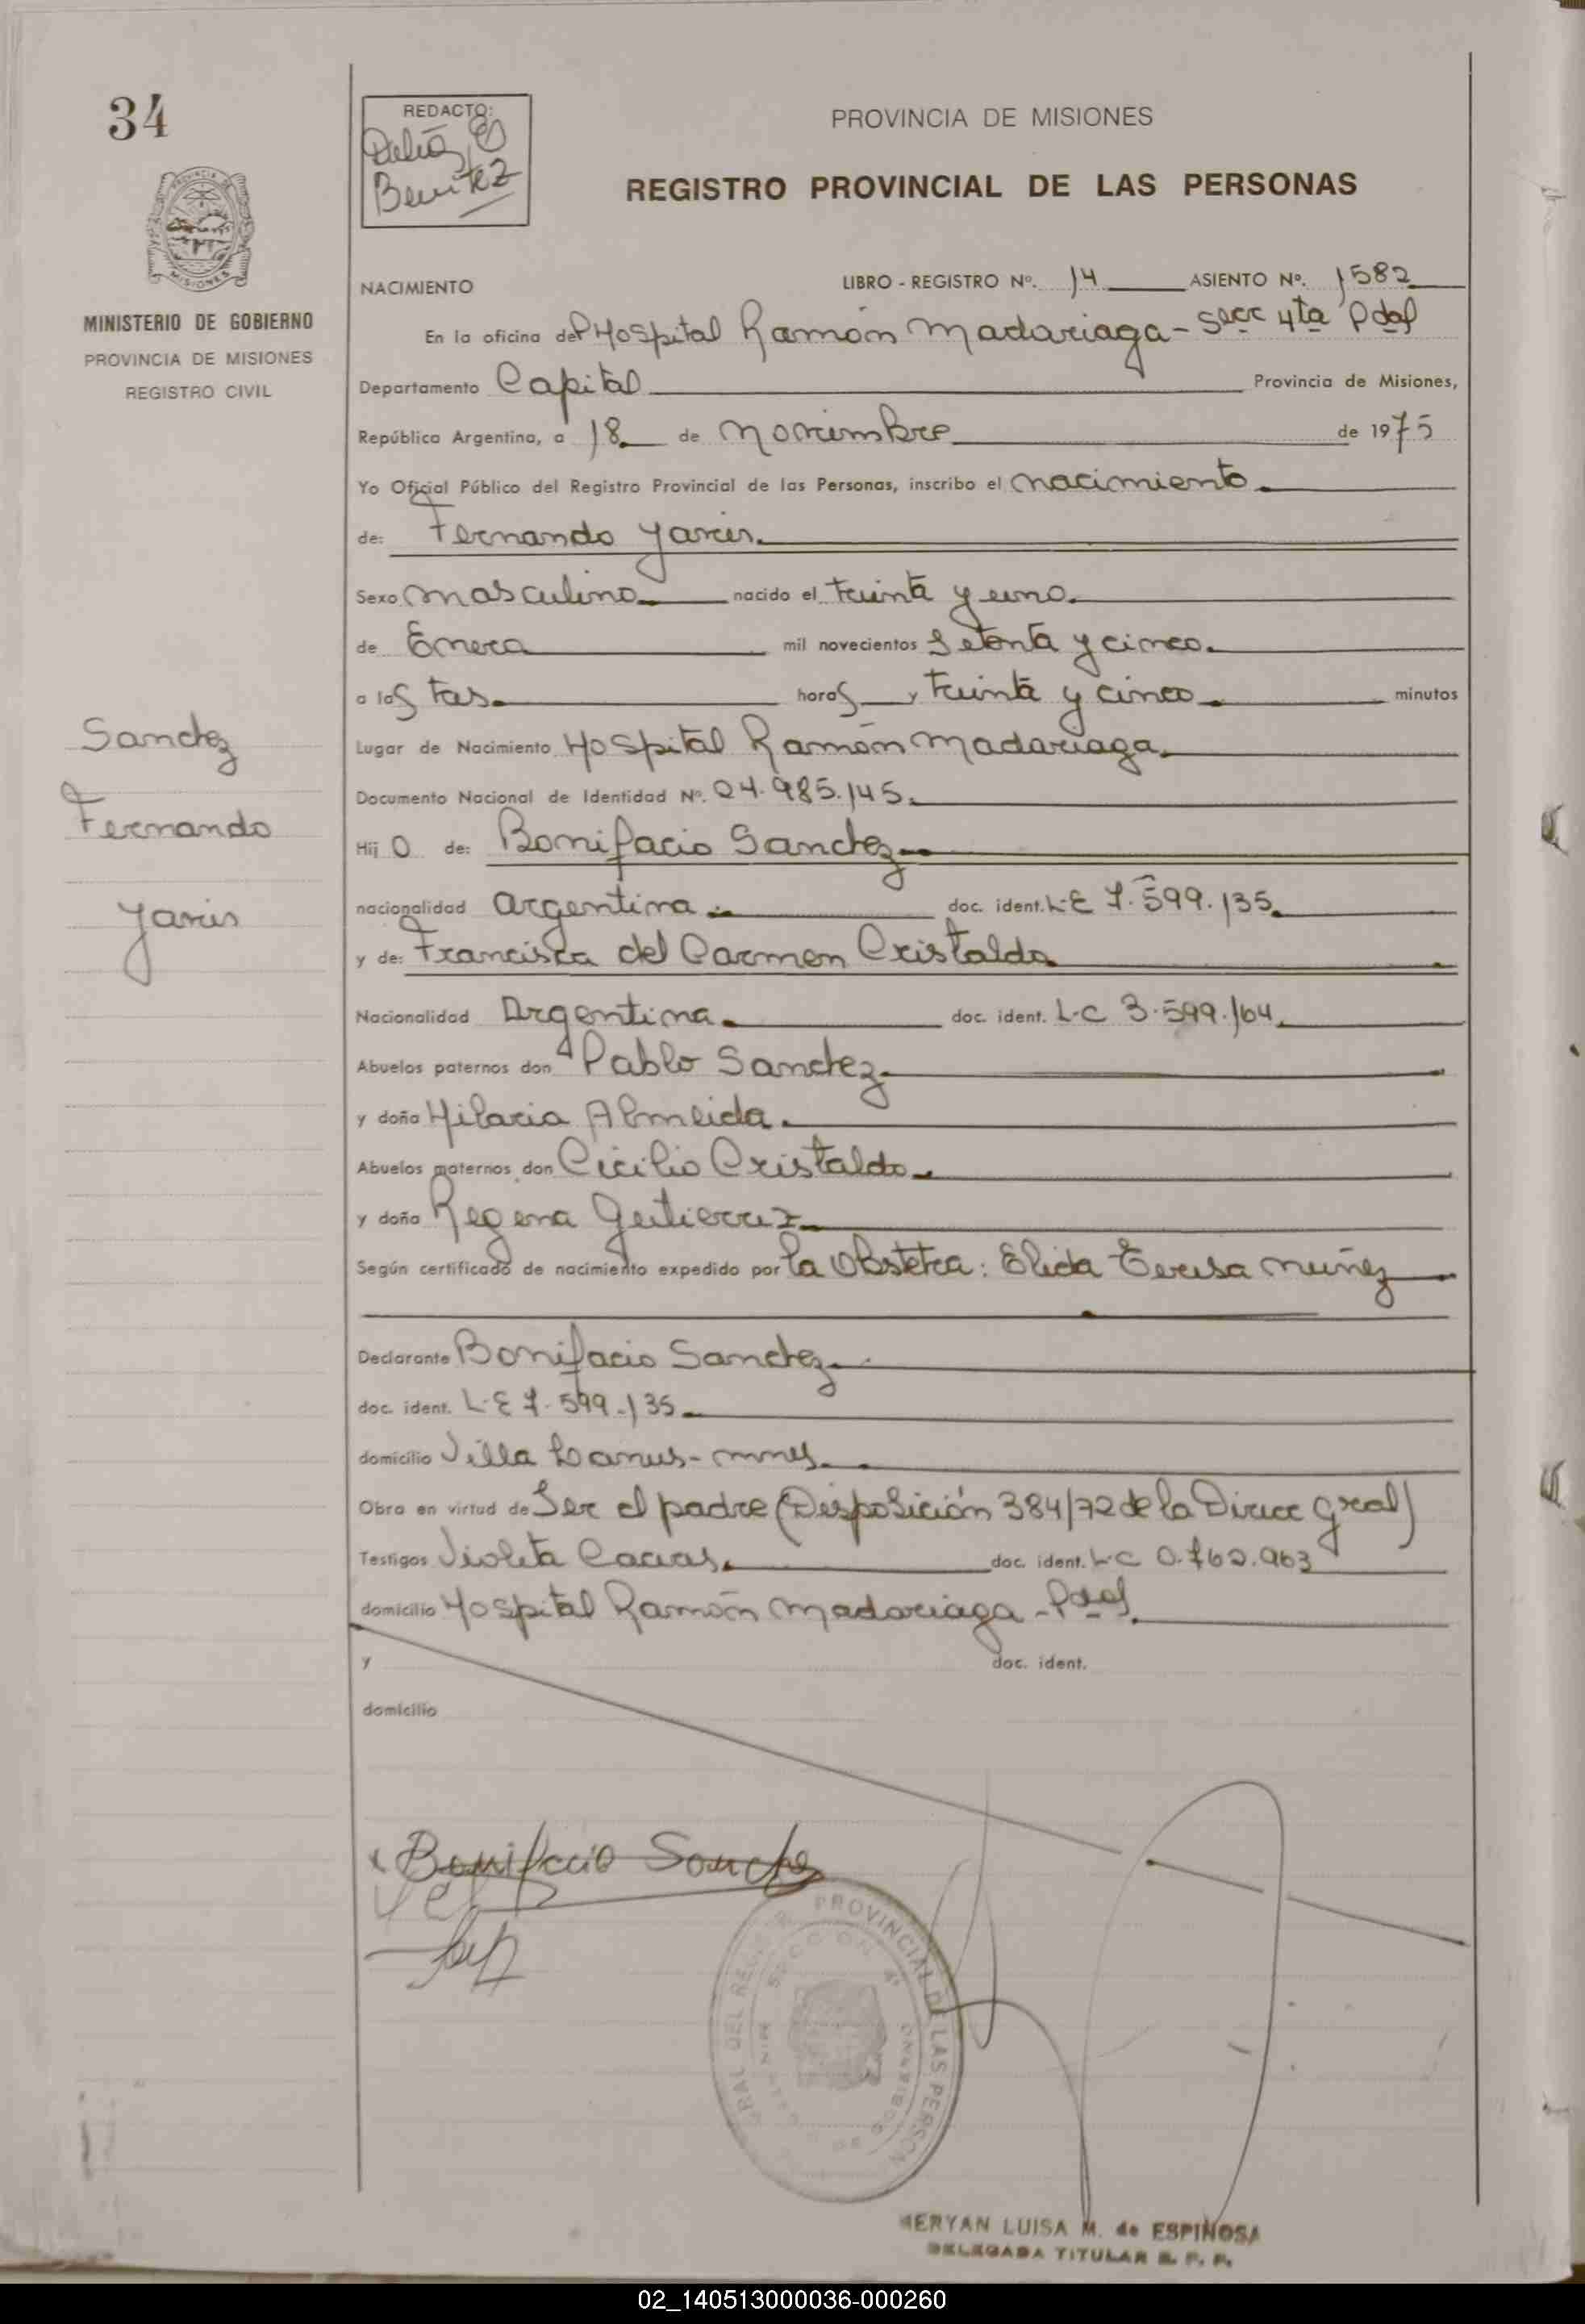 34
REDACTO:
Delia E
Benitez
PROVINCIA DE MISIONES
REGISTRO PROVINCIAL DE LAS PERSONAS
MINISTERIO DE GOBIERNO
PROVINCIA DE MISIONES
REGISTRO CIVIL
Sanchez
Fernando
Javier
NACIMIENTO LIBRO - REGISTRO Nº. 14 ASIENTO Nº. 1582
En la oficina del Hospital Ramón Madariaga - Secc 4ta Pdas
Departamento Capital Provincia de Misiones,
República Argentina, a 18 de Noviembre de 1975
Yo Oficial Público del Registro Provincial de las Personas, inscribo el nacimiento
de: Fernando Javier
Sexo masculino nacido el treinta y uno
de Enero mil novecientos Setenta y cinco
a las tres horas y treinta y cinco minutos
Lugar de Nacimiento Hospital Ramón Madariaga
Documento Nacional de Identidad Nº. 24.985.145
Hij o de: Bonifacio Sanchez
nacionalidad argentina doc. ident. L-E 7.599.135
y de: Francisca del Carmen Cristaldo
Nacionalidad Argentina doc. ident. L-C 3.599.164
Abuelos paternos don Pablo Sanchez
y doña Hilaria Almeida
Abuelos maternos don Cicilio Cristaldo
y doña Regena Gutierrez
Según certificado de nacimiento expedido por la Obstetra: Elida Teresa Nuñez
Declarante Bonifacio Sanchez
doc. ident. L-E 7.599.135
domicilio Villa Lanus - Mnes
Obra en virtud de Ser el padre (Disposición 384/72 de la Direcc Gral)
Testigos Violeta doc. ident. L-C 0.762.963
domicilio Hospital Ramón Madariaga - Pdas
y doc. ident.
domicilio
Bonifacio Sanchez
GRAL DEL PROVINCIAL DE LAS PERSON
MERYAN LUISA M. de ESPINOSA
DELEGADA TITULAR R. P. P.
02_140513000036-000260